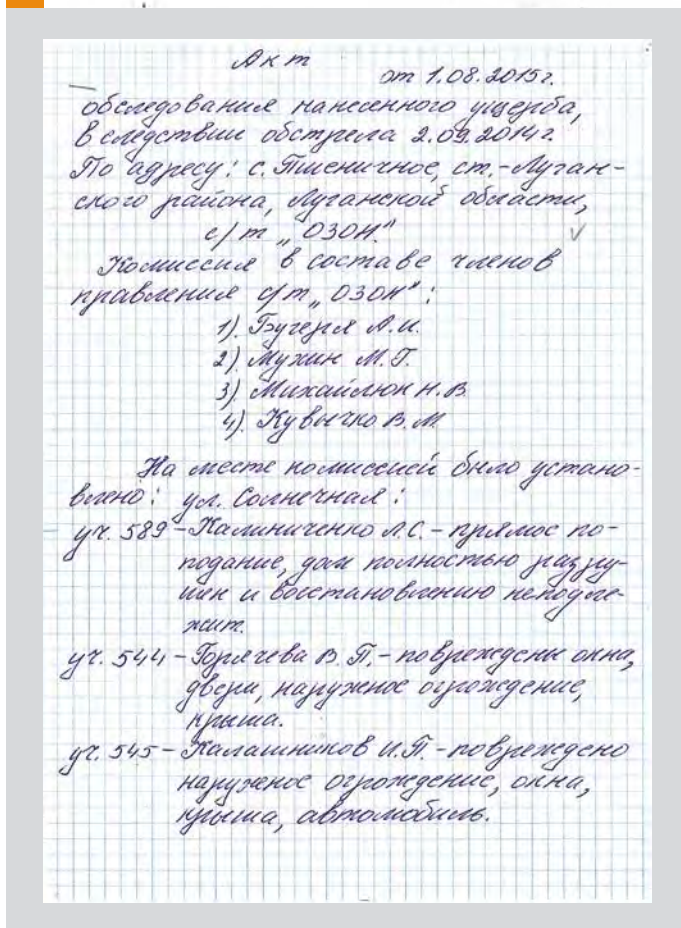 Акт
от 1.08.2015г.
обследования нанесенного ущерба,
в следствии обстрела 2.09.2014г.
По адресу: с. Пшеничное, ст.-Луган-
ского района, Луганской области,
с/т „ОЗОН."
Комиссия в составе членов
правления с/т „ОЗОН":
1). Бучегря А.И.
2). Мухин М.Г.
3) Михайлюк Н.В.
4). Кувычко В.М
На месте комиссией было устано-
влено: ул. Солнечная:
уч. 589 - Калиниченко Л.С. - прямое по-
подание, дом полностью разру-
шен и восстановлению неподле-
жит.
уч. 544 - Горячева В.П. - повреждены окна,
двери, наружное огрождение,
крыша.
уч. 545 - Калашников И.П. - повреждено
наружное огрождение, окна,
крыша, автомобиль.